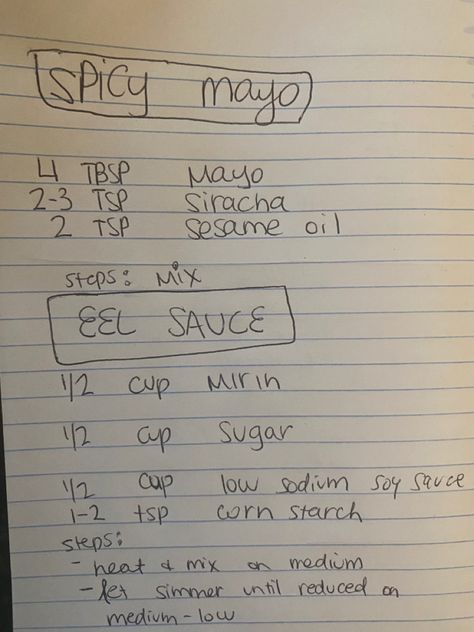 SPICY mayo
4 TBSP Mayo
2-3 TSP Siracha
2 TSP Sesame oil
Steps: Mix
EEL SAUCE
1/2 cup Mirin
1/2 cup Sugar
1/2 cup low sodium soy sauce
1-2 tsp corn starch
steps:
- heat & mix on medium
- let simmer until reduced on
medium-low